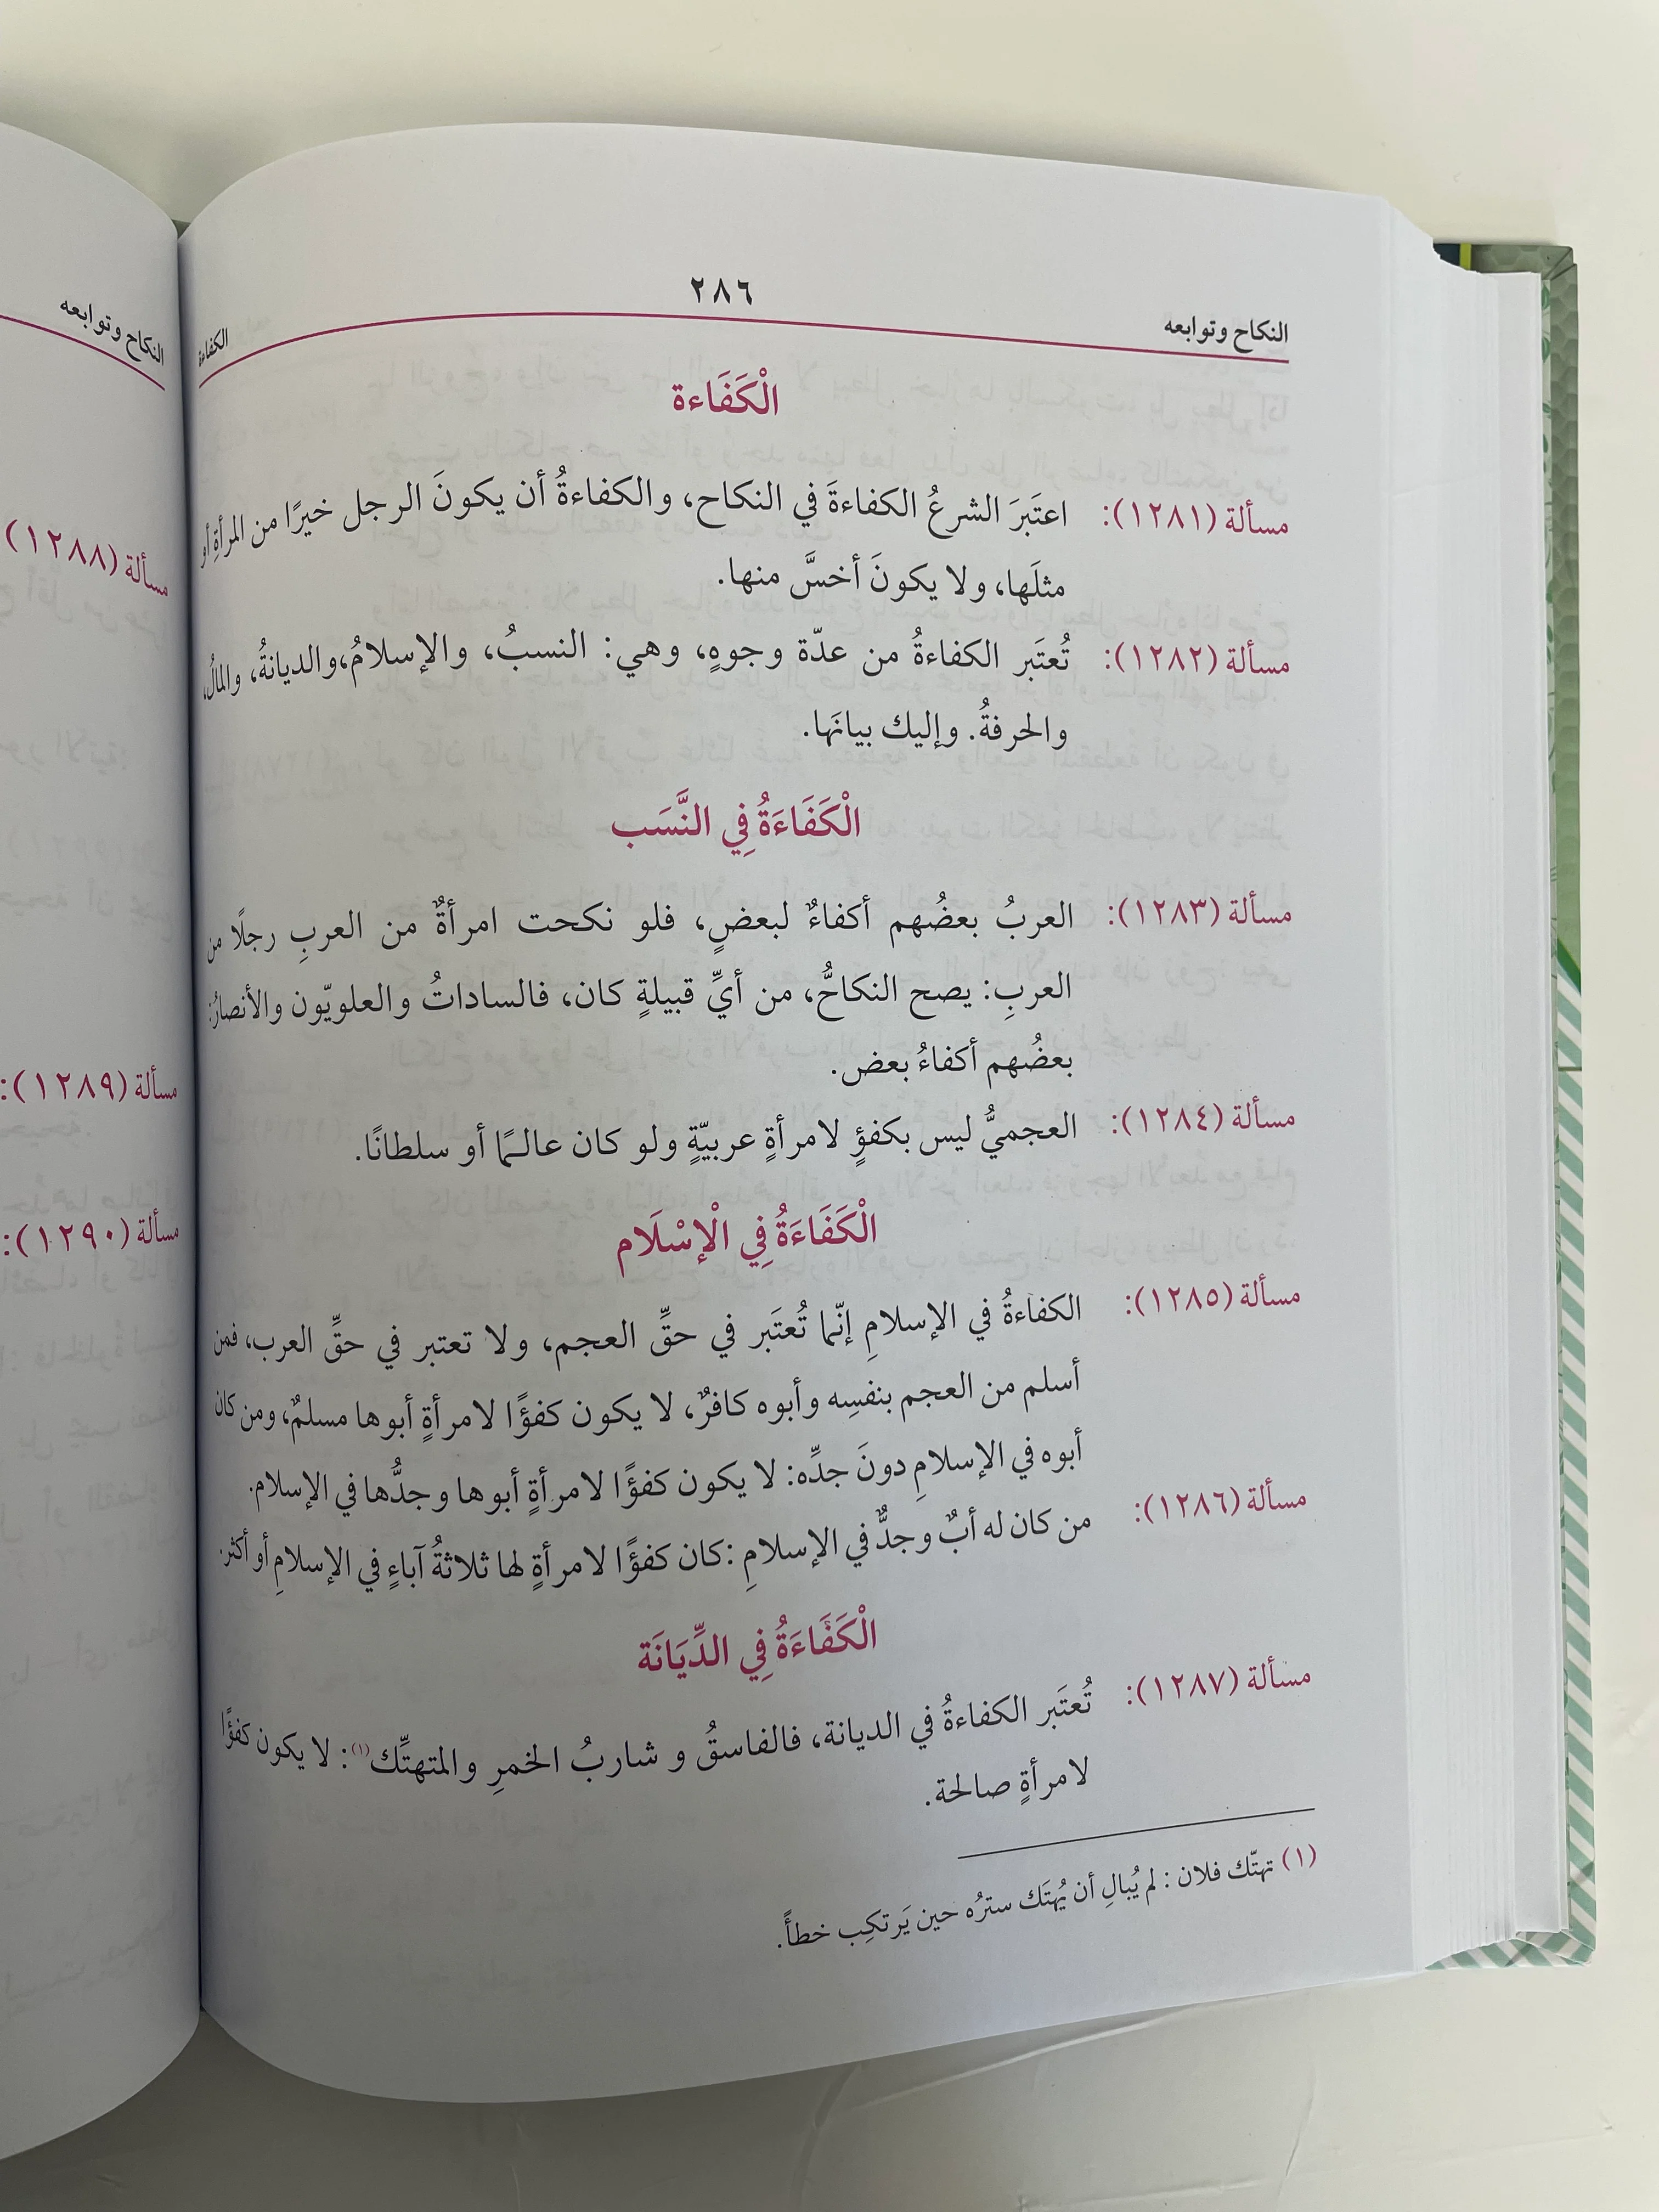 ٢٨٦
النكاح وتوابعه
الكفاءة
الْكَفَاءة
مسألة (١٢٨١): اعتَبَرَ الشرعُ الكفاءةَ في النكاح، والكفاءةُ أن يكونَ الرجل خيرًا من المرأةِ أو
مثلَها، ولا يكونَ أخسَّ منها.
مسألة (١٢٨٢): تُعتَبر الكفاءةُ من عدّة وجوهٍ، وهي: النسبُ، والإسلامُ،والديانةُ، والمالُ،
والحرفةُ. وإليك بيانَها.
الْكَفَاءَةُ فِي النَّسَب
مسألة (١٢٨٣): العربُ بعضُهم أكفاءٌ لبعضٍ، فلو نكحت امرأةٌ من العربِ رجلًا من
العربِ: يصح النكاحُّ، من أيِّ قبيلةٍ كان، فالساداتُ والعلويّون والأنصارُ:
بعضُهم أكفاءُ بعض.
مسألة (١٢٨٤): العجميُّ ليس بكفؤٍ لامرأةٍ عربيّةٍ ولو كان عالـمًا أو سلطانًا.
الْكَفَاءَةُ فِي الْإِسْلَام
مسألة (١٢٨٥): الكفاءةُ في الإسلامِ إنّما تُعتَبر في حقِّ العجم، ولا تعتبر في حقِّ العرب، فمن
أسلم من العجم بنفسِه وأبوه كافرٌ، لا يكون كفؤًا لامرأةٍ أبوها مسلمٌ، ومن كان
أبوه في الإسلامِ دونَ جدِّه: لا يكون كفؤًا لامرأةٍ أبوها وجدُّها في الإسلام.
مسألة (١٢٨٦): من كان له أبٌ وجدٌّ في الإسلامِ :كان كفؤًا لامرأةٍ لها ثلاثةُ آباءٍ في الإسلامِ أو أكثر.
الْكَفَاءَةُ فِي الدِّيَانَة
مسألة (١٢٨٧): تُعتَبر الكفاءةُ في الديانة، فالفاسقُ و شاربُ الخمرِ والمتهتِّك(١): لا يكون كفؤًا
لامرأةٍ صالحة.
(١) تهتّك فلان : لم يُبالِ أن يُهتَك سترُه حين يَرتكِب خطأً.
النكاح وتوابعه
مسألة (١٢٨٨)
مسألة (١٢٨٩):
مسألة (١٢٩٠):